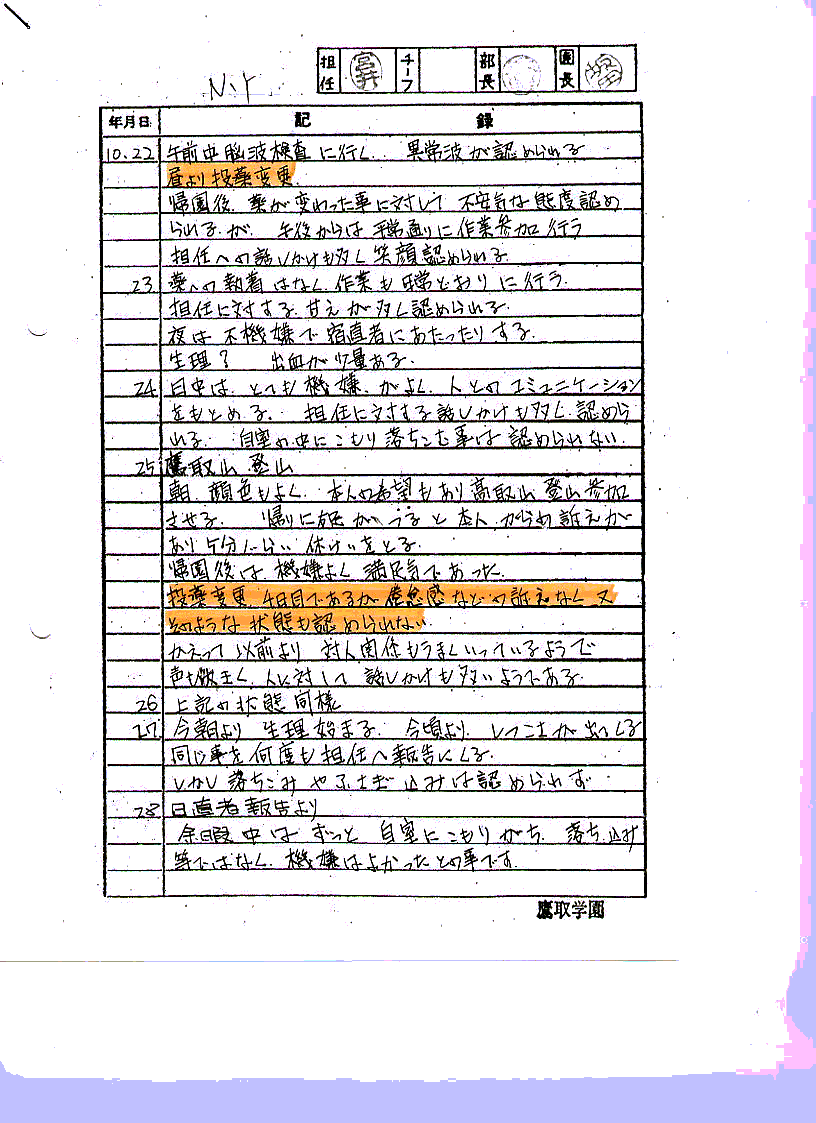 担任 宮井 チーフ 部長 園長
N.Y
年月日 記録
10.22 午前中脳波検査に行く. 異常波が認められる
昼より投薬変更.
帰園後. 薬が変わった事に対して 不安気な態度認め
られるが. 午後からは平常通りに作業参加行う
担任への話しかけも多く笑顔認められる.
23. 薬への執着はなく. 作業も平常どおりに行う.
担任に対する甘えが多く認められる.
夜は不機嫌で宿直者にあたったりする.
生理? 出血が少量ある.
24. 日中は. とても機嫌がよく. 人とのコミュニケーション
をもとめる. 担任に対する話しかけも多く認めら
れる. 自室の中にこもり落ちこむ事は認められない.
25. 鷹取山登山
朝. 顔色もよく. 本人の希望もあり高取山登山参加
させる. 帰りに右足がつると本人からの訴えが
あり5分ぐらい休けいをとる.
帰園後は機嫌よく満足気であった.
投薬変更. 4日目であるが倦怠感などの訴えなく又
そのような状態も認められない.
かえって以前より対人関係もうまくいっているようで
声も数多く. 人に対して話しかけも多いようである.
26 上記の状態同様
27. 今朝より生理始まる. 今頃より. しつこさが出てくる
同じ事を何度も担任へ報告にくる.
しかし落ちこみやふさぎ込みは認められず
28 日直者報告より
余暇中はずっと自室にこもりがち. 落ち込み
等ではなく. 機嫌はよかったとの事です.
鷹取学園